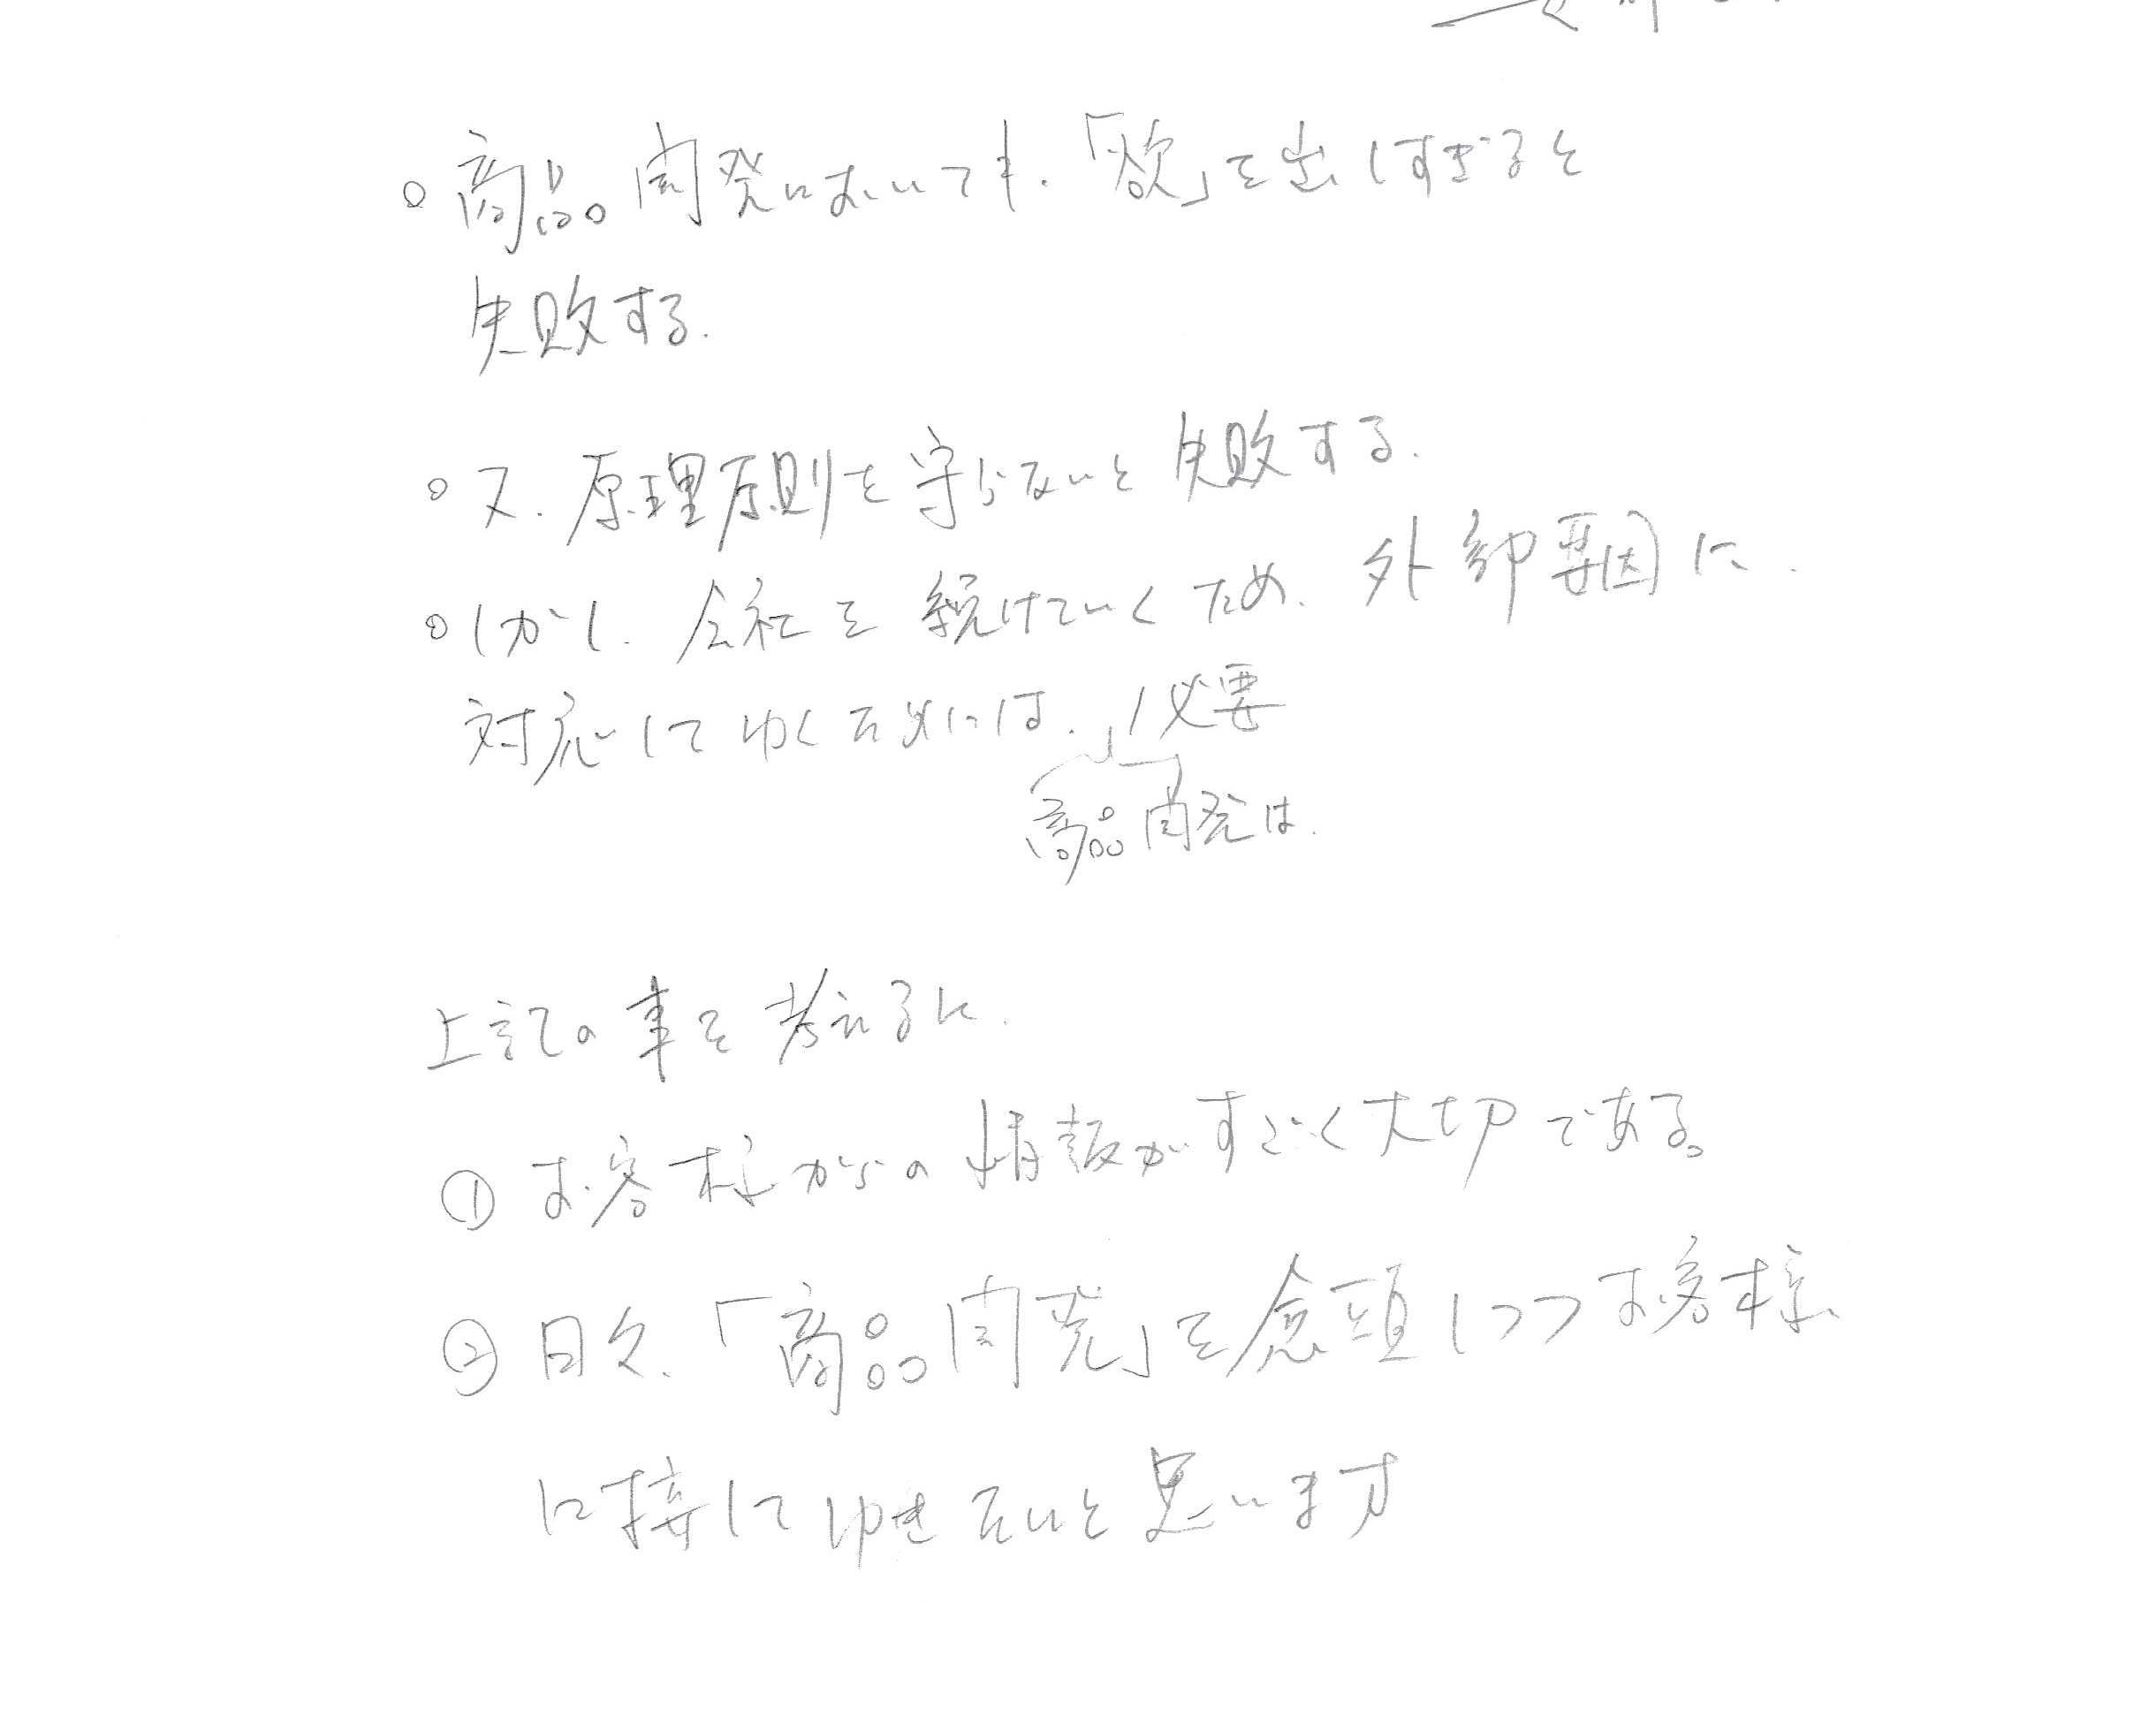 ○商品開発においても、「欲」を出しすぎると
失敗する。
○又、原理原則を守らないと失敗する。
○しかし、会社を続けていくため、外部要因に、
対応してゆくためには、必要
商品開発は、
上記の事を考えるに、
①お客様からの情報がすごく大切である。
②日々、「商品開発」を念頭しつつお客様、
に接してゆきたいと思います